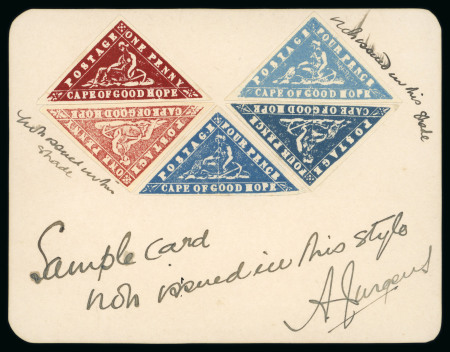 POSTAGE ONE PENNY
CAPE OF GOOD HOPE
POSTAGE FOUR PENCE
CAPE OF GOOD HOPE
not issued in this shade
CAPE OF GOOD HOPE
POSTAGE ONE PENCE
CAPE OF GOOD HOPE
POSTAGE FOUR PENCE
not issued in this
shade
POSTAGE FOUR PENCE
CAPE OF GOOD HOPE
Sample card
not issued in this style
A Jurgens